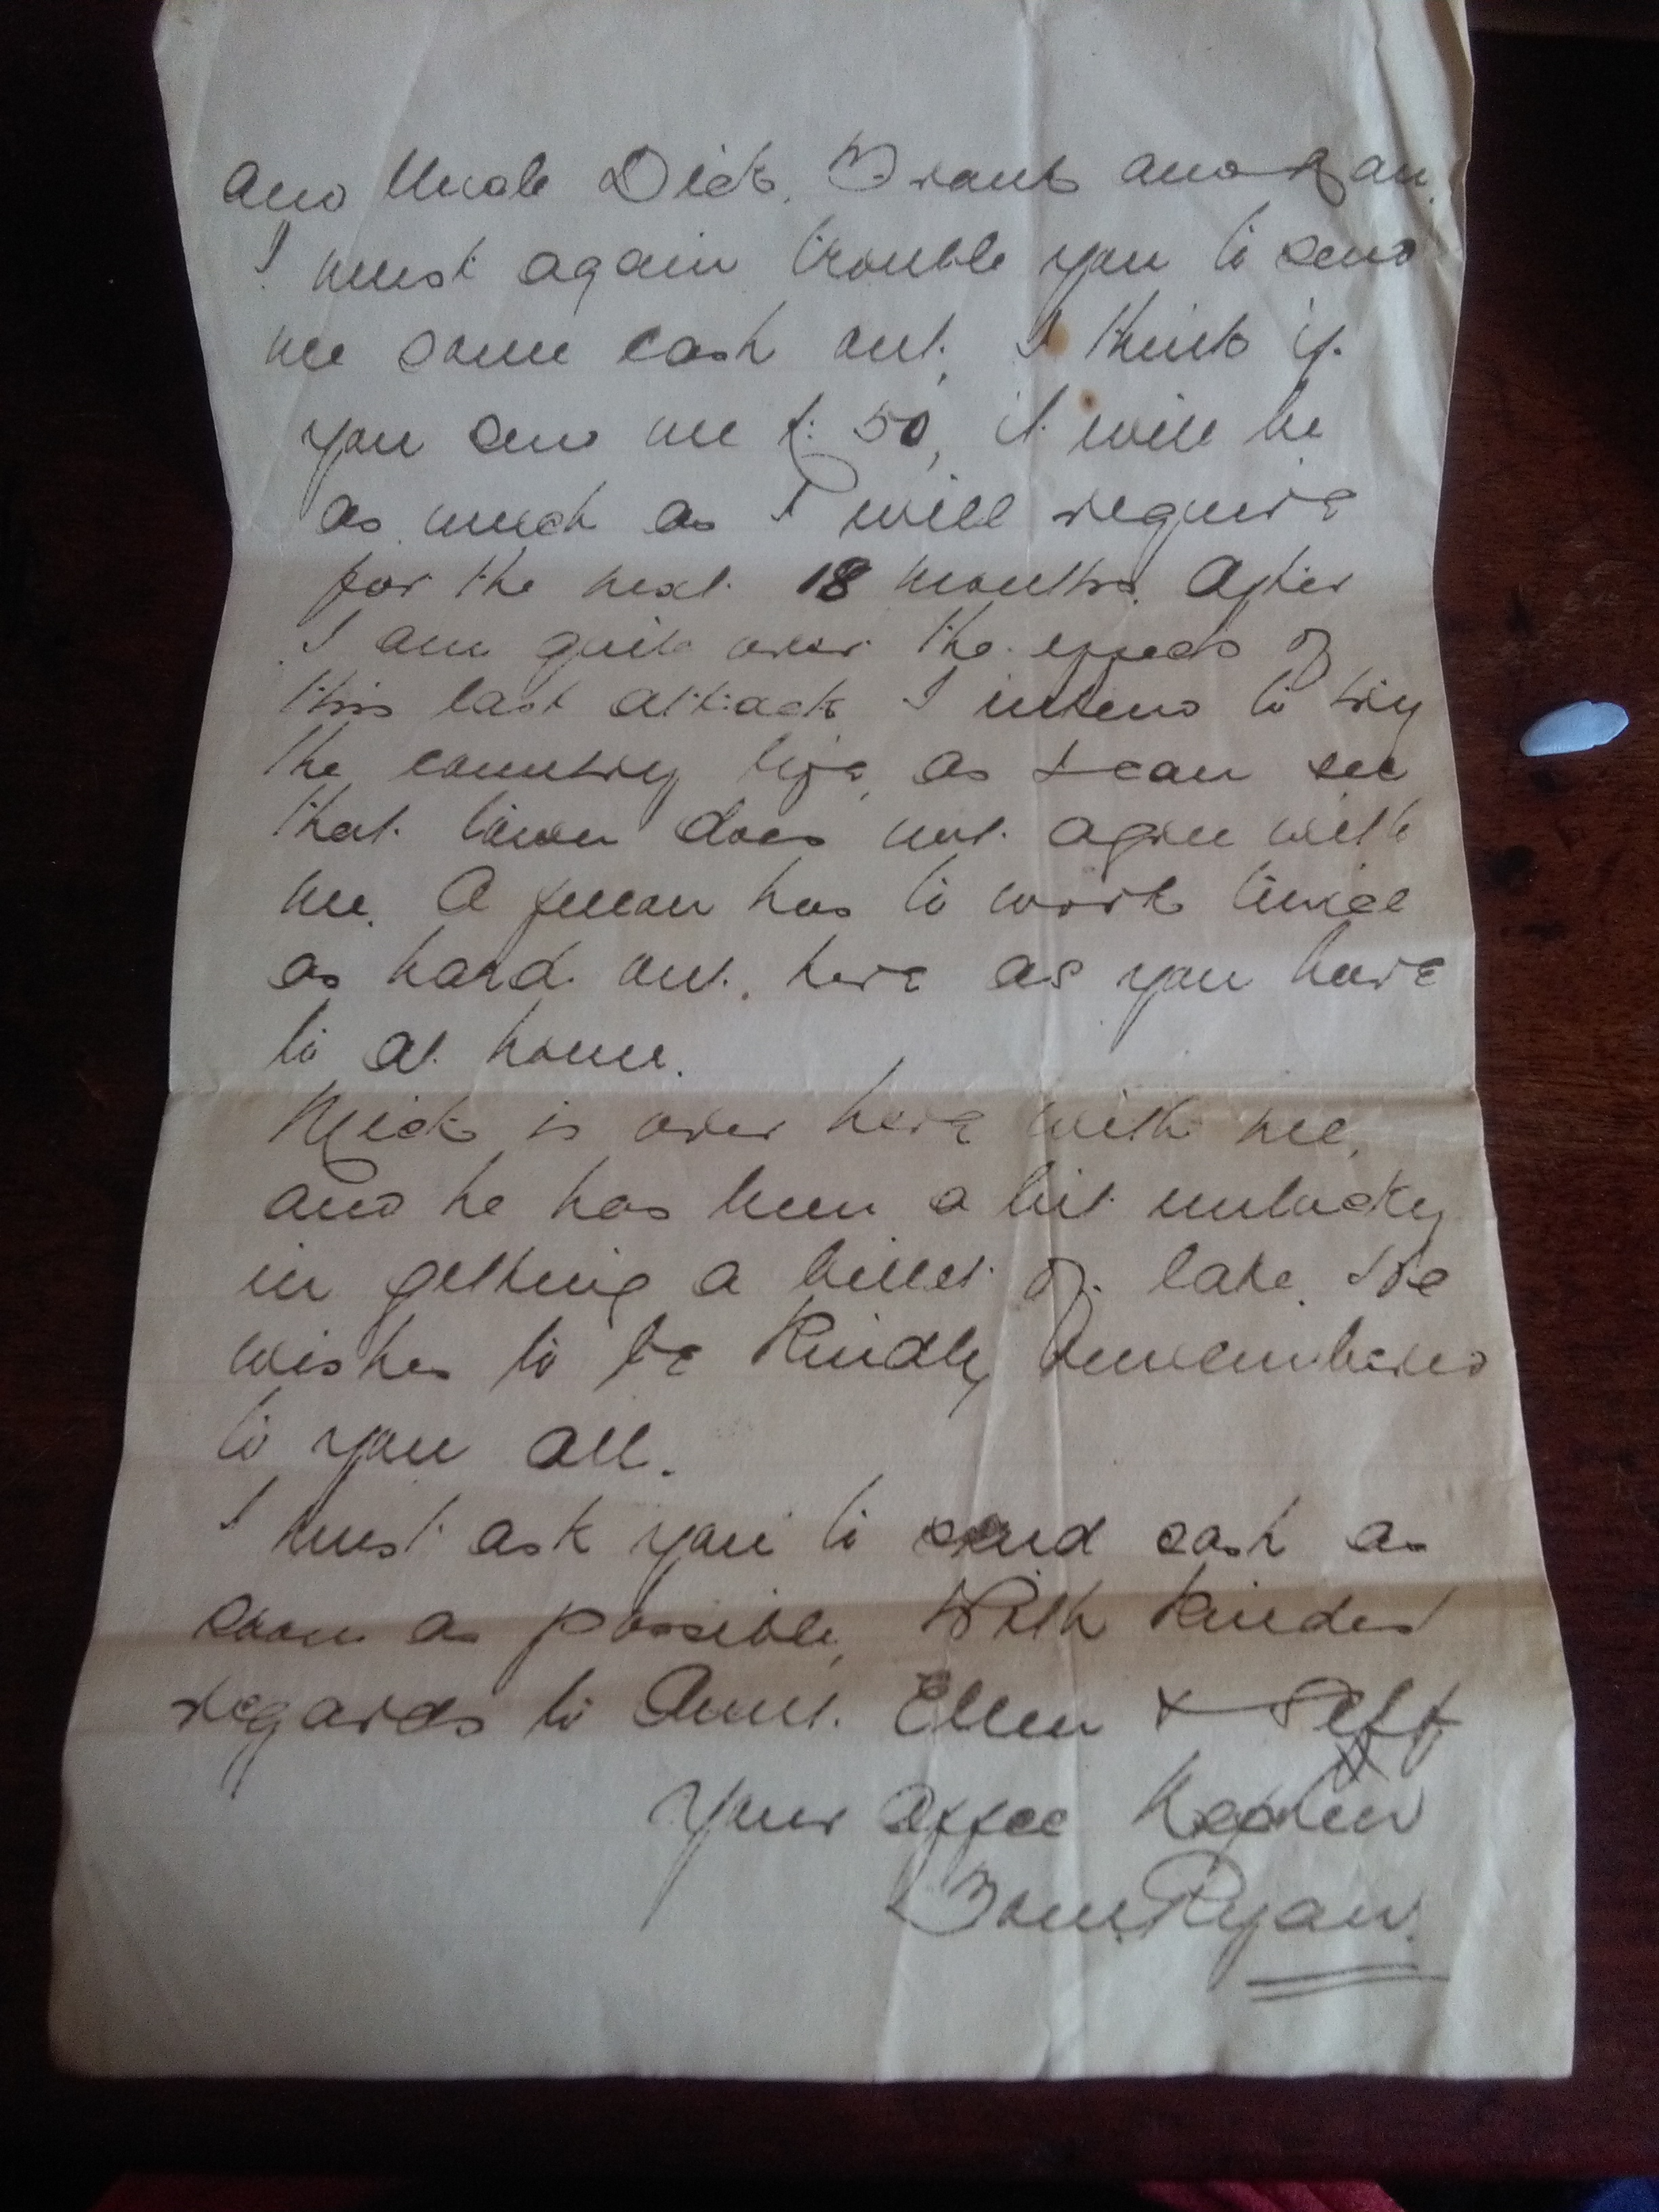 and Uncle Dick, Frank and Dan.
I must again trouble you to send
me some cash out, I think if
you send me £ 50, it will be
as much as I will require
for the next 18 months. After
I am quite over the effects of
this last attack I intend to try
the country life, as I can see
that town does not agree with
me. A fellow has to work twice
as hard out here as you have
to at home.
Mick is over here with me,
and he has been a bit unlucky
in getting a billet of late. He
wishes to be Kindly remembered
to you all.
I must ask you to send cash as
soon as possible, With Kindest
regards to Aunt. Ellen & Self
Your Affec Nephew
Ryan.